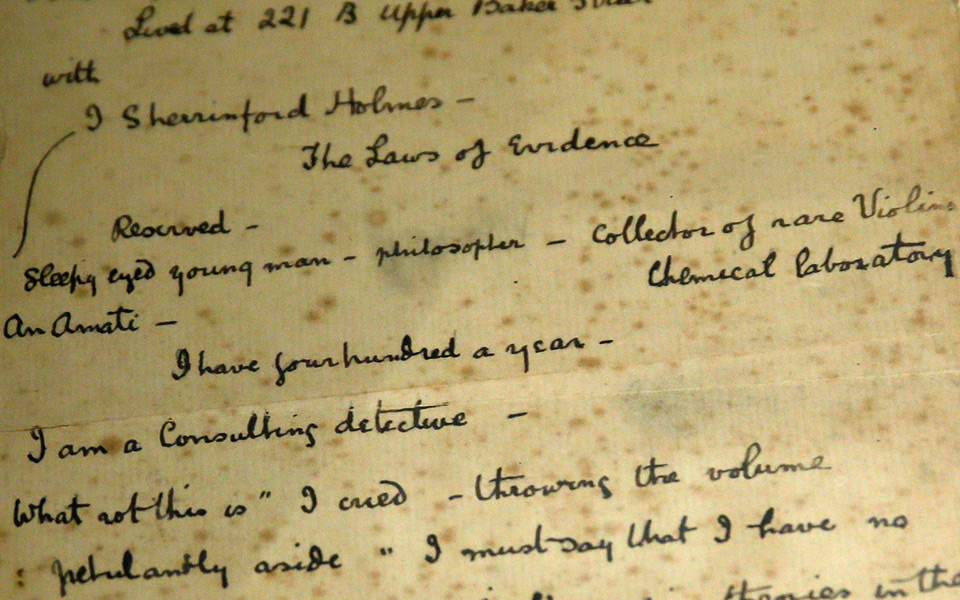 Lived at 221 B Upper Baker Street
with
I Sherrinford Holmes –
The Laws of Evidence
Reserved –
Sleepy eyed young man – philosopher – Collector of rare Violins
An Amati –
Chemical laboratory
I have four hundred a year –
I am a Consulting detective –
What rot this is" I cried – throwing the volume
: petulantly aside " I must say that I have no
theories in the